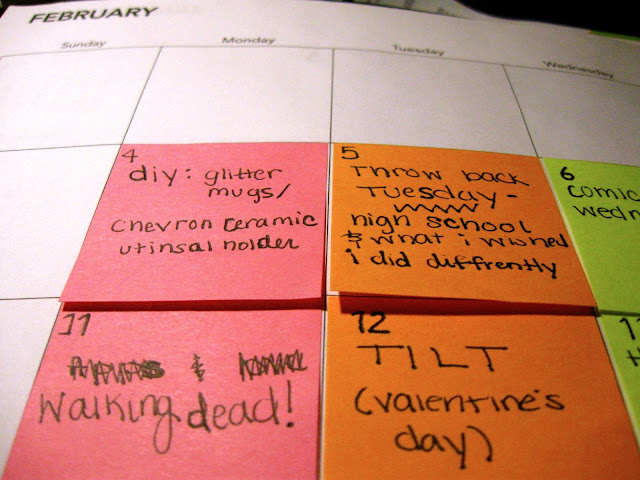 FEBRUARY
Sunday Monday Tuesday Wednesday
4
diy: glitter
mugs/
chevron ceramic
utinsal holder
5
Throw back
Tuesday -
high school
& what i wished
i did diffrently
6
comic
wedn
11
&
Walking dead!
12
TILT
(valentine's
day)